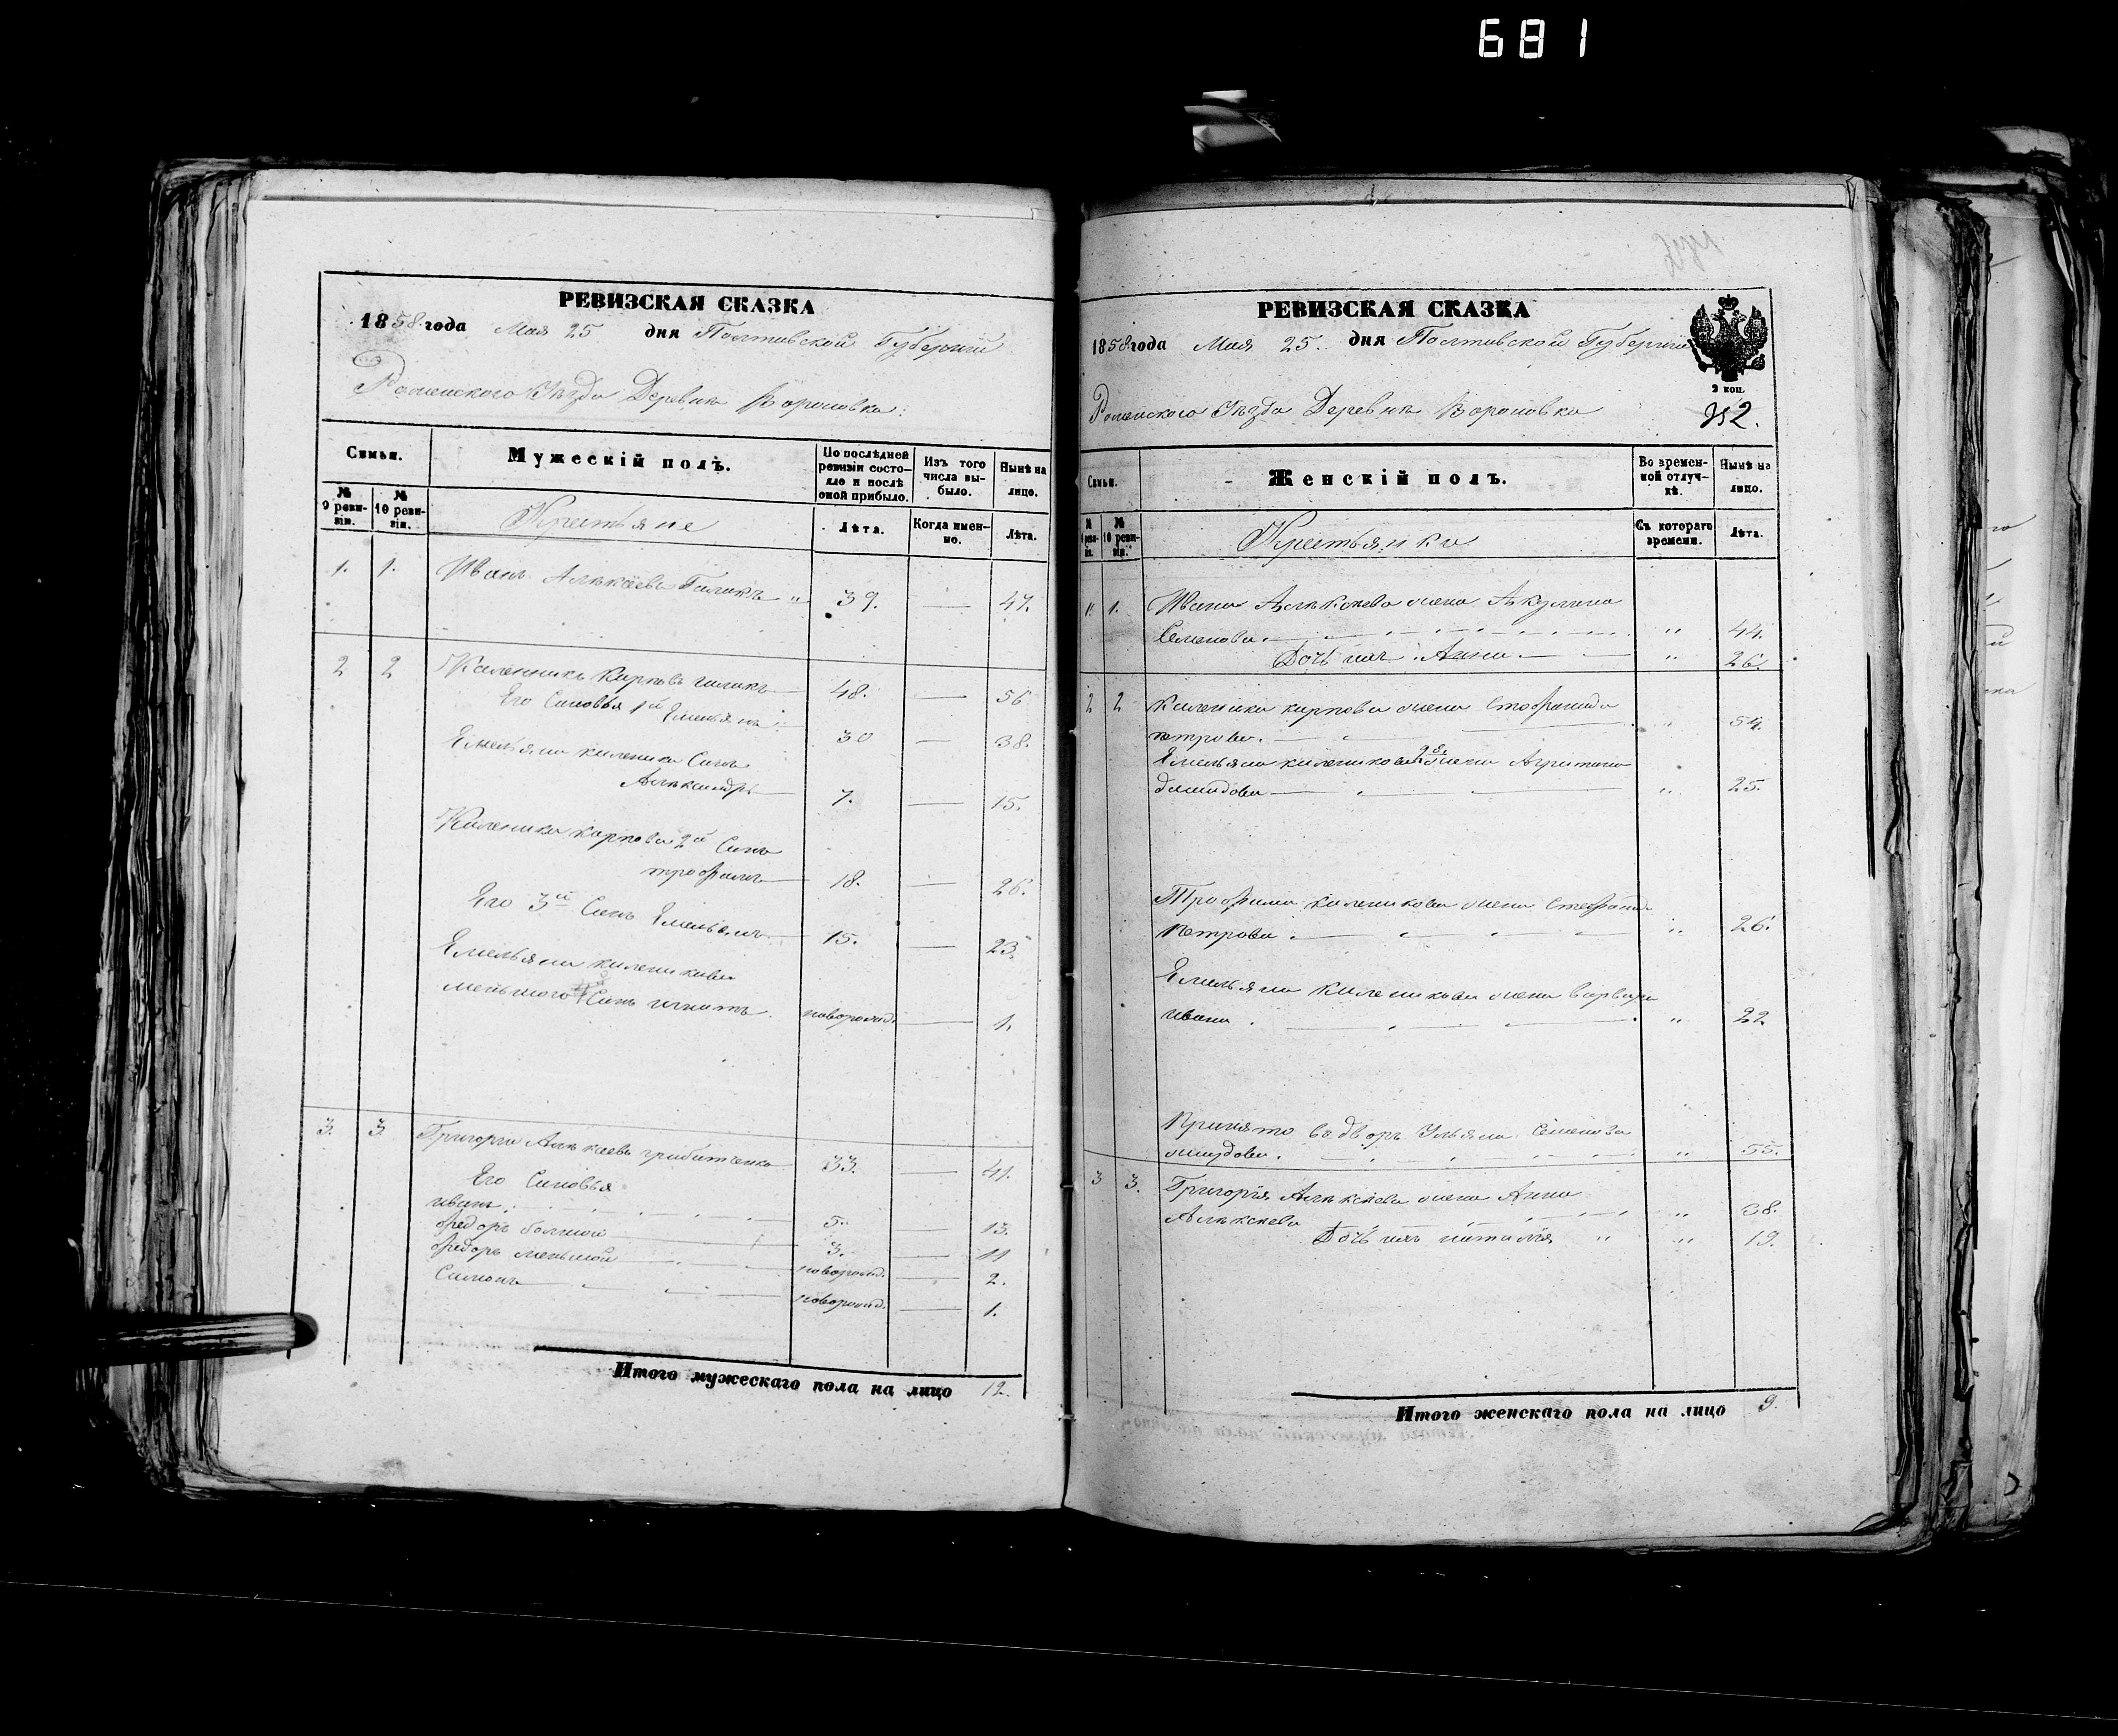 681
РЕВИЗСКАЯ СКАЗКА
1858 года Мая 25 дня Полтавской Губернии
Роменского Уѣзда Деревни Вороновка
Семьи.
Мужескій полъ.
По послѣдней ревизіи состояло и послѣ оной прибыло.
Изъ того числа выбыло.
Нынѣ на лицо.
№ 9 ревизіи.
№ 10 ревизіи.
Крестьяне
Лѣта.
Когда именно.
Лѣта.
1. 1. Иванъ Алексѣевъ " 39. — 47.
2 2 Каленникъ Карповъ 48. — 56
Его Сыновья 1й Емельянъ 30 — 38.
Емельяна каленика Сынъ
Александръ 7. — 15.
Каленика карпова 2й Сынъ
трофимъ 18. — 26.
Его 3й Сынъ Емельянъ 15. — 23.
Емельяна каленикова
меньшого Сынъ игнатъ новорожд. — 1.
3. 3. Григорій Алексѣевъ 33. — 41.
Его Сыновья
иванъ 5. 13.
федоръ большой 3. — 11
федоръ меньшой новорожд. — 2.
Симонъ новорожд. — 1.
Итого мужескаго пола на лицо 12.
РЕВИЗСКАЯ СКАЗКА
1858 года Мая 25. дня Полтавской Губернии
2 коп.
Роменского Уѣзда Деревни Вороновка
Семьи.
Женскій полъ.
Во временной отлучкѣ.
Нынѣ на лицо.
№ 9 ревизіи.
№ 10 ревизіи.
Крестьянки
Съ котораго времени.
Лѣта.
1. 1. Ивана Алексѣева жена Акулина
Семенова. " 44.
Дочь ихъ Анна " 26.
2 2 Каленика карпова жена
петрова. " 54.
Емельяна каленикова 2я жена
" 25.
Трофима каленикова жена
петрова " 26.
Емельяна каленикова жена варвара
ивана " 22
Принято в дворъ Ульяна Семенова
" 55.
3 3. Григорія Алексѣева жена Анна
Алексѣева " 38.
Дочь ихъ наталія " " 19.
Итого женскаго пола на лицо 9.